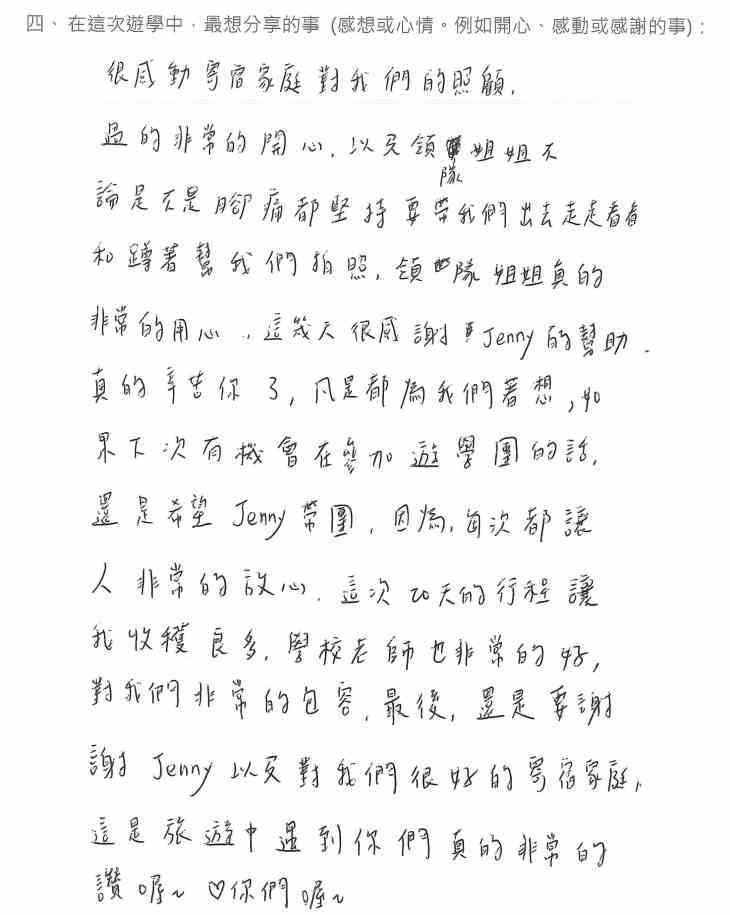 四、在這次遊學中，最想分享的事 (感想或心情。例如開心、感動或感謝的事)：
很感動寄宿家庭對我們的照顧，
過的非常的開心，以及領隊姐姐不
論是不是腳痛都堅持要帶我們出去走走看看
和蹲著幫我們拍照，領隊姐姐真的
非常的用心，這幾天很感謝Jenny的幫助，
真的辛苦你了，凡是都為我們著想，如
果下次有機會在參加遊學團的話，
還是希望Jenny帶團，因為，每次都讓
人非常的放心，這次20天的行程讓
我收穫良多，學校老師也非常的好，
對我們非常的包容，最後，還是要謝
謝Jenny以及對我們很好的寄宿家庭，
這是旅遊中遇到你們真的非常的
讚喔~ ♡你們喔~